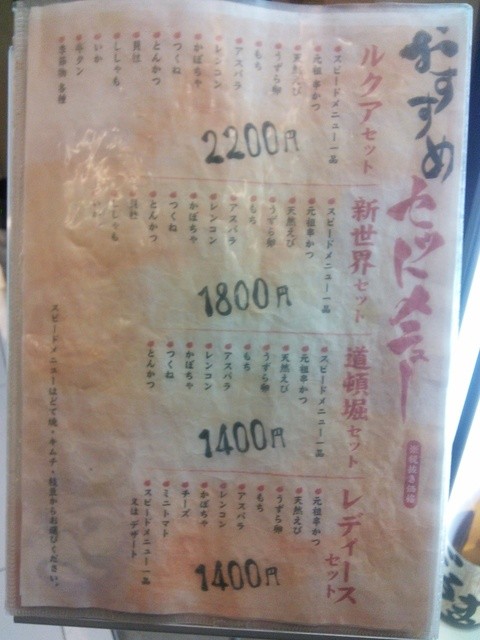 おすすめ
セットメニュー
税抜き価格
ルクアセット
スピードメニュー一品
元祖串かつ
天然えび
うずら卵
もち
アスパラ
レンコン
かぼちゃ
つくね
とんかつ
貝柱
ししゃも
いか
牛タン
季節物各種
2200円
新世界セット
スピードメニュー一品
元祖串かつ
天然えび
うずら卵
もち
アスパラ
レンコン
かぼちゃ
つくね
とんかつ
貝柱
ししゃも
1800円
道頓堀セット
スピードメニュー一品
元祖串かつ
天然えび
うずら卵
もち
アスパラ
レンコン
かぼちゃ
つくね
とんかつ
1400円
レディースセット
元祖串かつ
天然えび
うずら卵
もち
アスパラ
レンコン
かぼちゃ
チーズ
ミニトマト
スピードメニュー一品
又は デザート
1400円
スピードメニューはどて焼・キムチ・枝豆からお選びください。